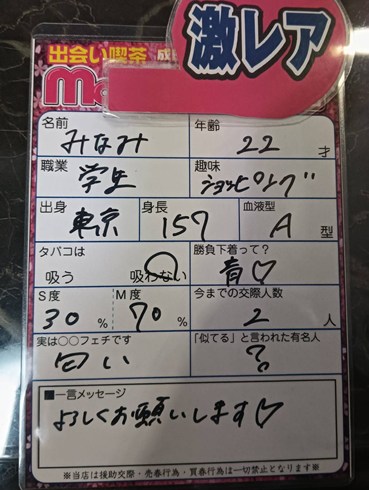 激レア
出会い喫茶 成
Ma
名前 みなみ 年齢 22 才
職業 学生 趣味 ショッピング
出身 東京 身長 157 血液型 A 型
タバコは 吸う 吸わない 勝負下着って? 青♡
S度 30% M度 70% 今までの交際人数 2人
実は○○フェチです 匂い 「似てる」と言われた有名人 ?
■一言メッセージ
よろしくお願いします♡
※当店は援助交際・売春行為・買春行為は一切禁止となります※